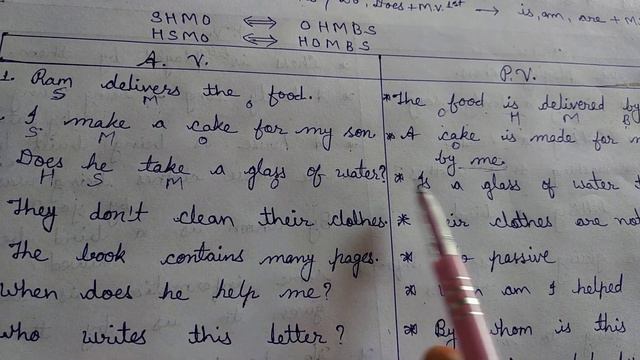 Does + M.V. 1st → is, am, are + M
SHMO ⟺ OHMBS
HSMO ⟺ HOMBS
A. V.
P.V.
1. Ram delivers the food.
S M O
* The food is delivered by
O H M B
I make a cake for my son
S M O
* A cake is made for
O
by me.
Does he take a glass of water?
H S M O
* Is a glass of water
They don't clean their clothes.
* eir clothes are not
The book contains many pages.
* passive
When does he help me?
* am I helped
Who writes this letter?
* By whom is this